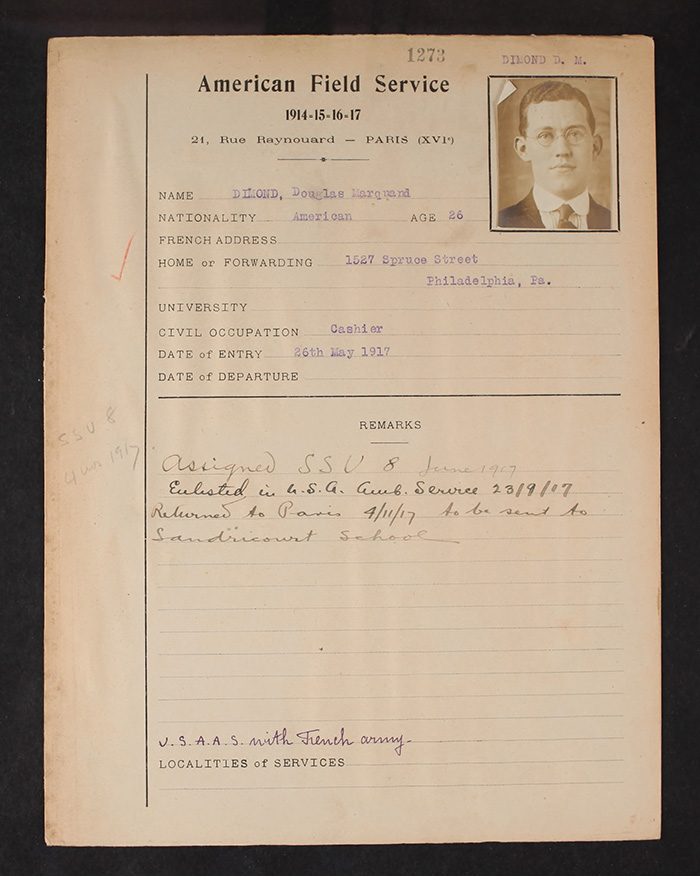 1273
DIMOND D. M.
American Field Service
1914-15-16-17
21, Rue Raynouard — PARIS (XVIe)
NAME DIMOND, Douglas Marquand
NATIONALITY American AGE 26
FRENCH ADDRESS
HOME or FORWARDING 1527 Spruce Street
Philadelphia, Pa.
UNIVERSITY
CIVIL OCCUPATION Cashier
DATE of ENTRY 26th May 1917
DATE of DEPARTURE
REMARKS
SSU 8
4 mos 1917
Assigned SSU 8 June 1917
Enlisted in U.S.A. Amb. Service 23/9/17
Returned to Paris 4/11/17 to be sent to
Sandricourt School
U.S.A.A.S. with French army-
LOCALITIES of SERVICES